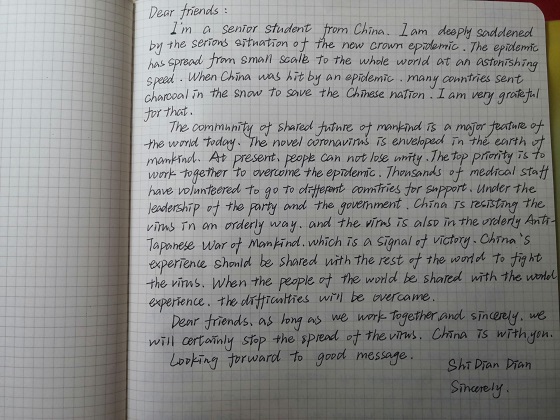 Dear friends:
I'm a senior student from China. I am deeply saddened
by the serious situation of the new crown epidemic. The epidemic
has spread from small scale to the whole world at an astonishing
speed. When China was hit by an epidemic. many countries sent
charcoal in the snow to save the Chinese nation. I am very grateful
for that.
The community of shared future of mankind is a major feature of
the world today. The novel coronavirus is enveloped in the earth of
mankind. At present, people can not lose unity. The top priority is to
work together to overcome the epidemic. Thousands of medical staff
have volunteered to go to different countries for support. Under the
leadership of the party and the government. China is resisting the
virus in an orderly way. and the virus is also in the orderly Anti-
Japanese War of Mankind. which is a signal of victory. China's
experience should be shared with the rest of the world to fight
the virus. When the people of the world be shared with the world
experience. the difficulties will be overcame.
Dear friends. as long as we work together and sincerely. we
will certainly stop the spread of the virus. China is with you.
Looking forward to good message.
Shi Dian Dian
Sincerely.